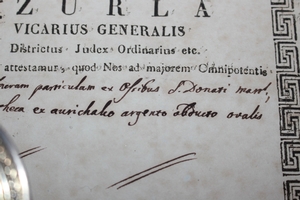 ZURLA
VICARIUS GENERALIS
Districtus Judex Ordinarius etc.
attestamur, quod Nos ad majorem Omnipotentis
particulam ex Ossibus S. Donati mart,
theca ex aurichalco argento obducto ovalis